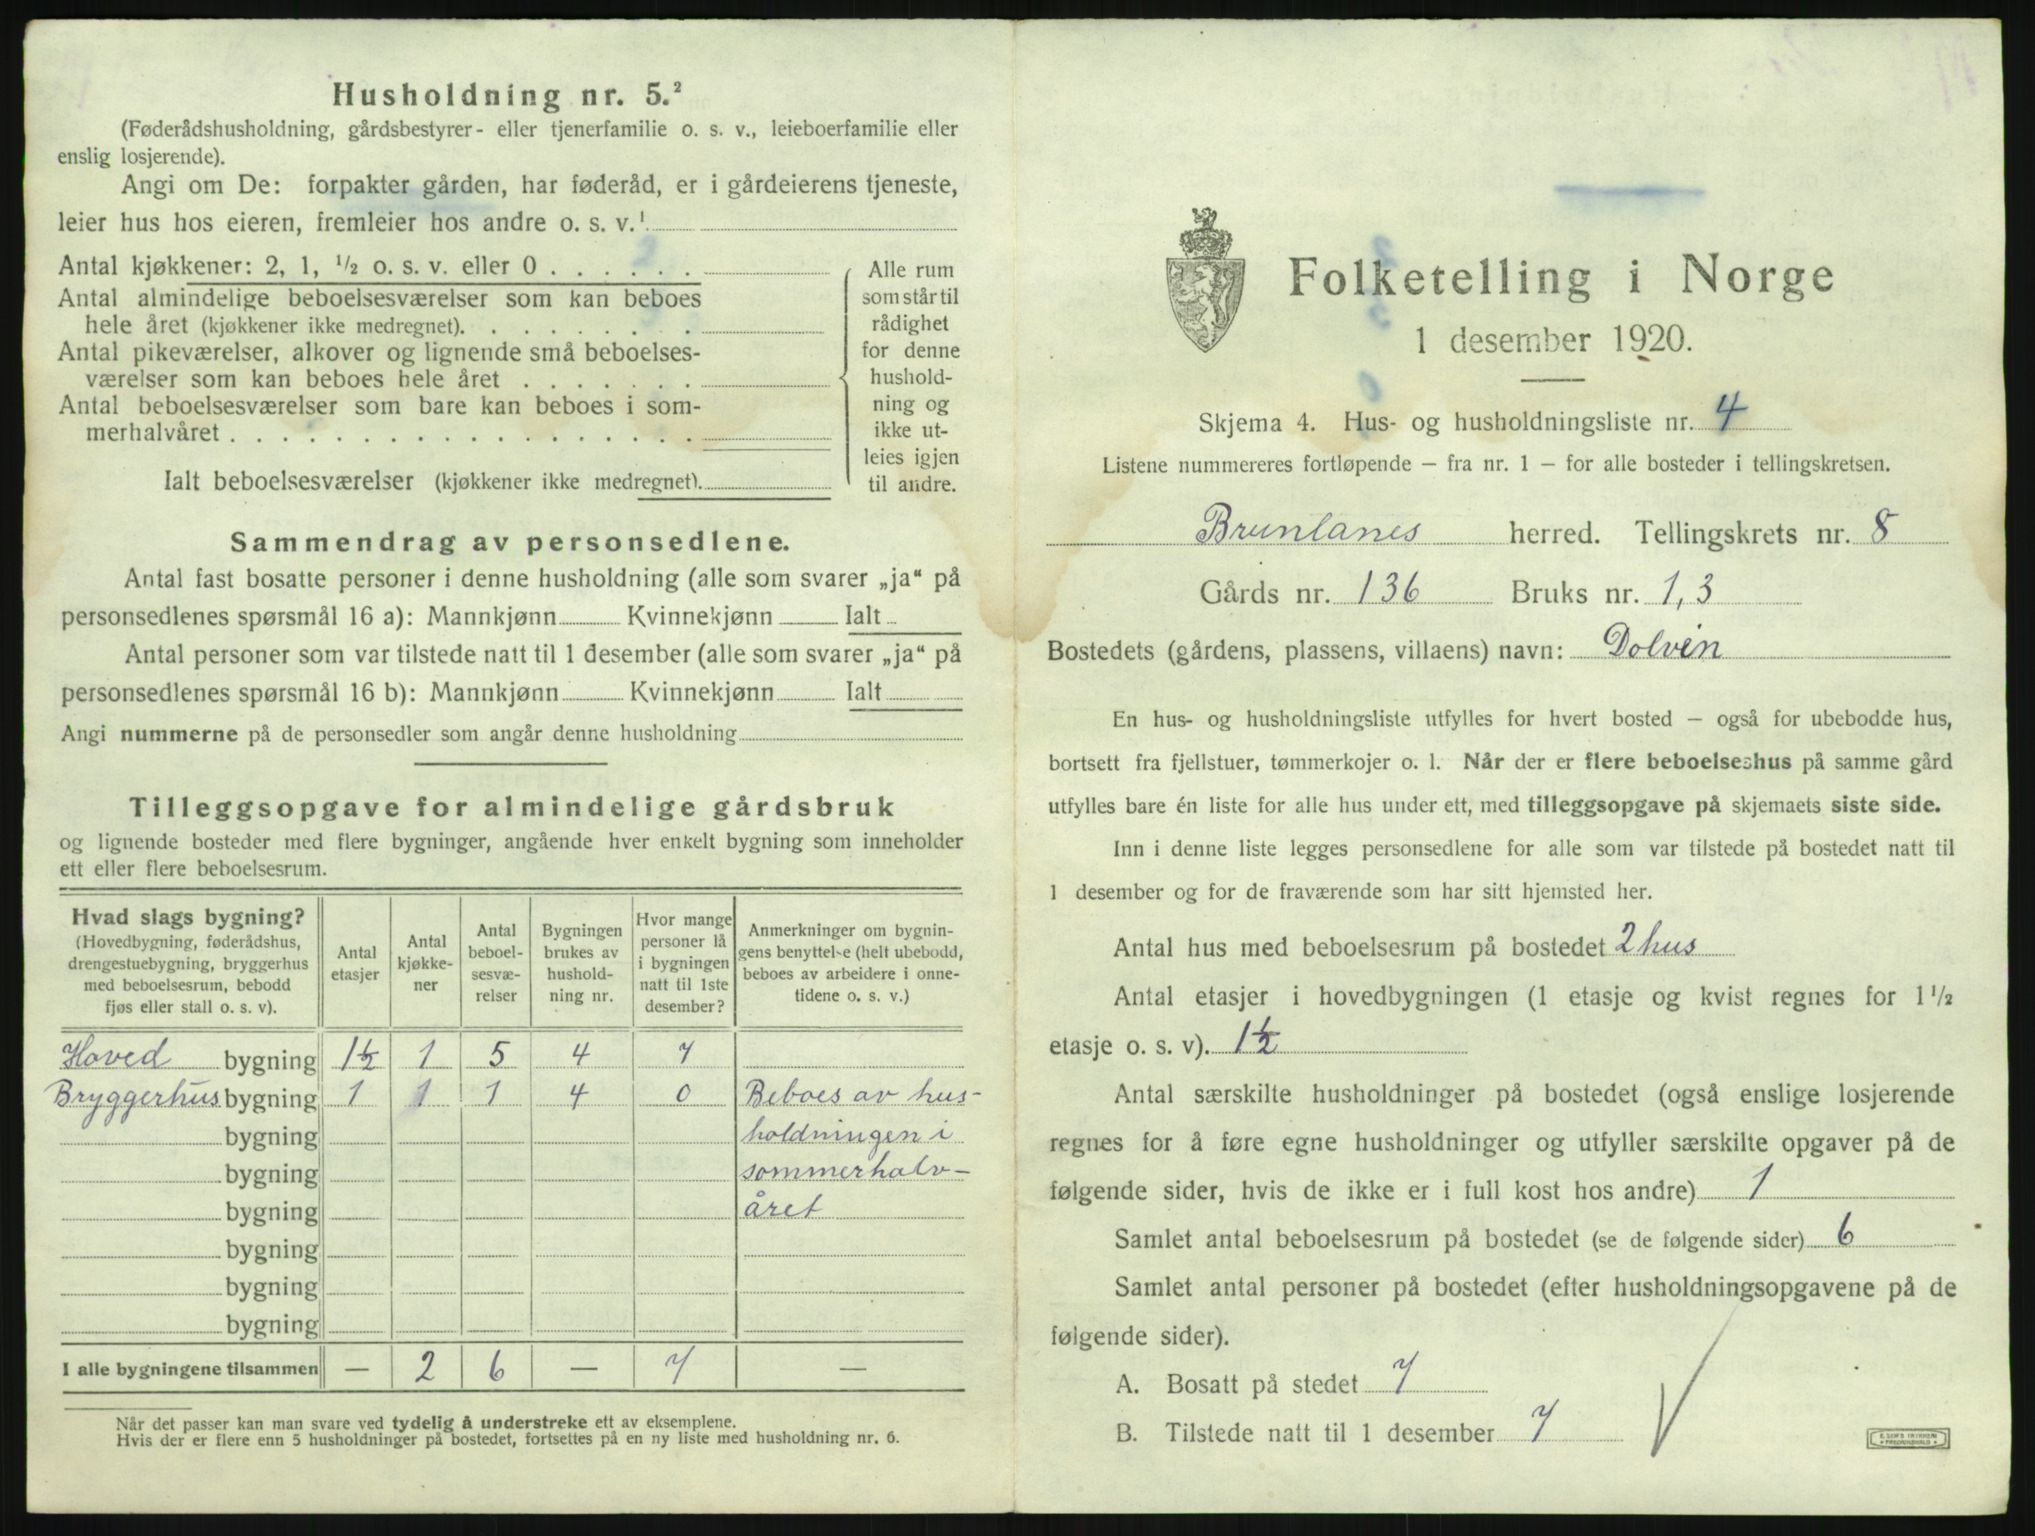 Husholdning nr. 5.²
(Føderådshusholdning, gårdsbestyrer- eller tjenerfamilie o. s. v., leieboerfamilie eller
enslig losjerende).
Angi om De: forpakter gården, har føderåd, er i gårdeierens tjeneste,
leier hus hos eieren, fremleier hos andre o. s. v.¹
Antal kjøkkener: 2, 1, ½ o. s. v. eller 0 . . . . . .
Antal almindelige beboelsesværelser som kan beboes
hele året (kjøkkener ikke medregnet). . . . . . . . .
Antal pikeværelser, alkover og lignende små beboelses-
værelser som kan beboes hele året . . . . . . .
Antal beboelsesværelser som bare kan beboes i som-
merhalvåret . . . . . . . . . . . . . . . . .
Ialt beboelsesværelser (kjøkkener ikke medregnet).
Alle rum
som står til
rådighet
for denne
hushold-
ning og
ikke ut-
leies igjen
til andre.
Sammendrag av personsedlene.
Antal fast bosatte personer i denne husholdning (alle som svarer „ja“ på
personsedlenes spørsmål 16 a): Mannkjønn Kvinnekjønn Ialt
Antal personer som var tilstede natt til 1 desember (alle som svarer „ja“ på
personsedlenes spørsmål 16 b): Mannkjønn Kvinnekjønn Ialt
Angi nummerne på de personsedler som angår denne husholdning
Tilleggsopgave for almindelige gårdsbruk
og lignende bosteder med flere bygninger, angående hver enkelt bygning som inneholder
ett eller flere beboelsesrum.
Hvad slags bygning?
(Hovedbygning, føderådshus,
drengestuebygning, bryggerhus
med beboelsesrum, bebodd
fjøs eller stall o. s. v).
Antal
etasjer
Antal
kjøkke-
ner
Antal
beboel-
sesvæ-
relser
Bygningen
brukes av
hushold-
ning nr.
Hvor mange
personer lå
i bygningen
natt til 1ste
desember?
Anmerkninger om bygnin-
gens benyttelse (helt ubebodd,
beboes av arbeidere i onne-
tidene o. s. v.)
Hoved bygning 1½ 1 5 4 7
Bryggerhus bygning 1 1 1 4 0 Beboes av hus-
bygning holdningen i
bygning sommerhalv-
bygning året
bygning
bygning
bygning
I alle bygningene tilsammen — 2 6 — 7 —
Når det passer kan man svare ved tydelig å understreke ett av eksemplene.
Hvis der er flere enn 5 husholdninger på bostedet, fortsettes på en ny liste med husholdning nr. 6.
Folketelling i Norge
1 desember 1920.
Skjema 4. Hus- og husholdningsliste nr. 4
Listene nummereres fortløpende – fra nr. 1 – for alle bosteder i tellingskretsen.
Brunlanes herred. Tellingskrets nr. 8
Gårds nr. 136 Bruks nr. 1, 3
Bostedets (gårdens, plassens, villaens) navn: Dolven
En hus- og husholdningsliste utfylles for hvert bosted – også for ubebodde hus,
bortsett fra fjellstuer, tømmerkojer o. l. Når der er flere beboelseshus på samme gård
utfylles bare én liste for alle hus under ett, med tilleggsopgave på skjemaets siste side.
Inn i denne liste legges personsedlene for alle som var tilstede på bostedet natt til
1 desember og for de fraværende som har sitt hjemsted her.
Antal hus med beboelsesrum på bostedet 2 hus
Antal etasjer i hovedbygningen (1 etasje og kvist regnes for 1½
etasje o. s. v). 1½
Antal særskilte husholdninger på bostedet (også enslige losjerende
regnes for å føre egne husholdninger og utfyller særskilte opgaver på de
følgende sider, hvis de ikke er i full kost hos andre) 1
Samlet antal beboelsesrum på bostedet (se de følgende sider) 6
Samlet antal personer på bostedet (efter husholdningsopgavene på de
følgende sider).
A. Bosatt på stedet 7
B. Tilstede natt til 1 desember 7